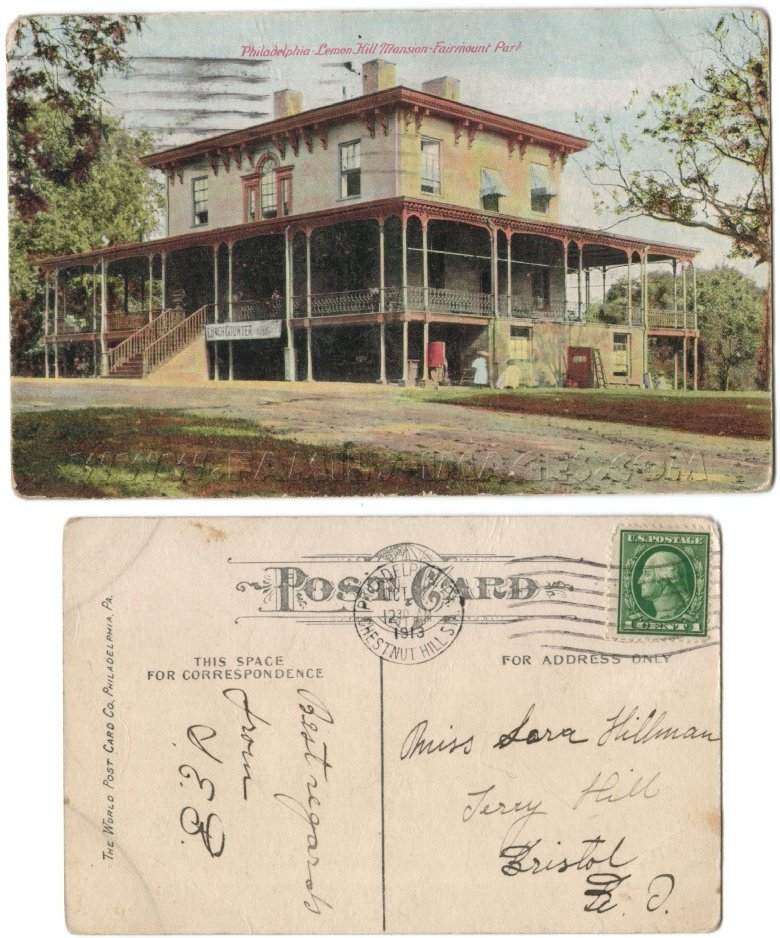 Philadelphia-Lemon Hill Mansion-Fairmount Park
LUNCH COUNTER
WWW.FAMILY-IMAGES.COM
POST CARD
PHILADELPHIA, PA.
1230
1913
CHESTNUT HILL STA.
U.S. POSTAGE
1 CENT 1
THIS SPACE
FOR CORRESPONDENCE
FOR ADDRESS ONLY
THE WORLD POST CARD CO. PHILADELPHIA, PA.
Best regards
from
S.E.B.
Miss Sara Hillman
Terry Hill
Bristol